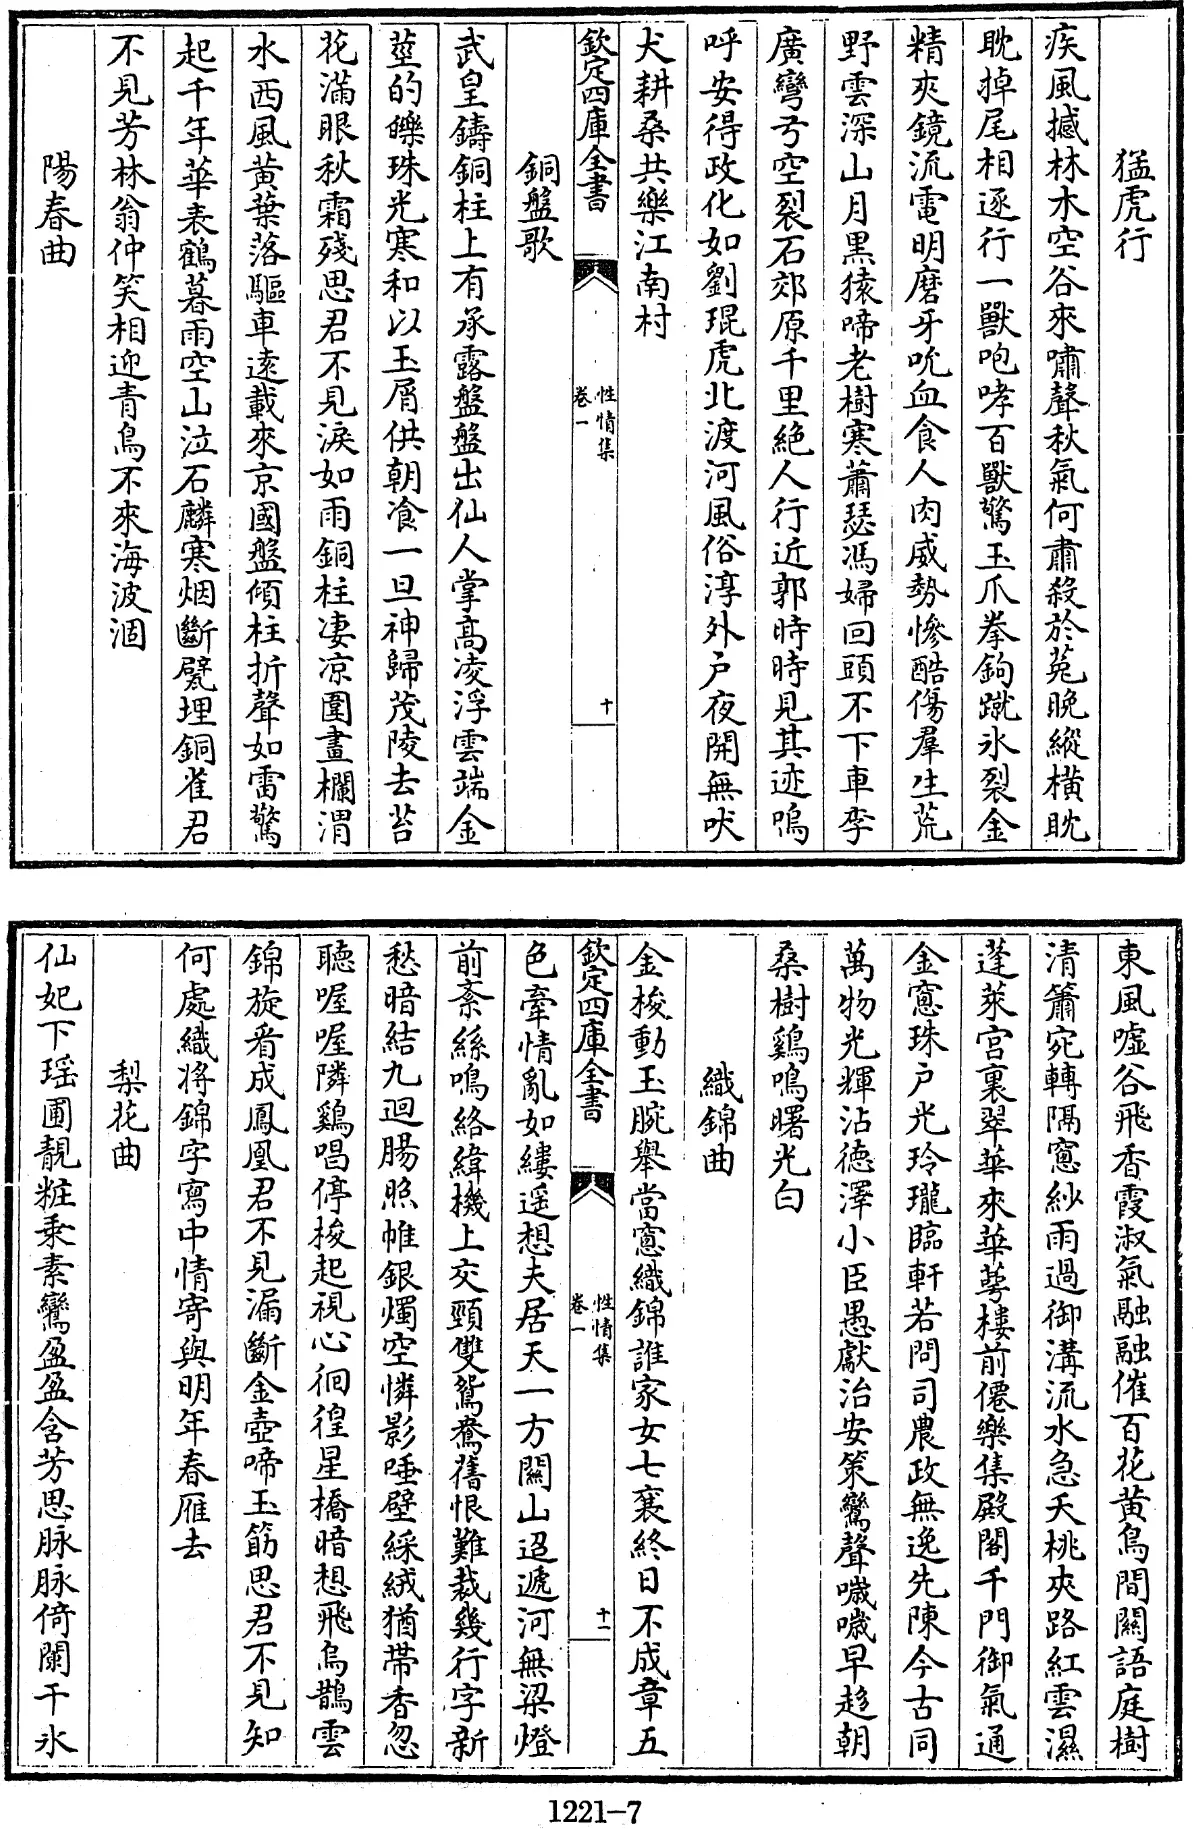 猛虎行
疾風撼林木空谷來嘯聲秋氣何肅殺於菟晚縱橫眈
眈掉尾相逐行一獸咆哮百獸驚玉爪拳鉤蹴氷裂金
精夾鏡流電明磨牙吮血食人肉威勢慘酷傷羣生荒
野雲深山月黑猿啼老樹寒蕭瑟馮婦回頭不下車李
廣彎弓空裂石郊原千里絶人行近郭時時見其迹嗚
呼安得政化如劉琨虎北渡河風俗淳外戸夜開無吠
犬耕桑共樂江南村
欽定四庫全書
性情集
卷一
十
銅盤歌
武皇鑄銅柱上有承露盤盤出仙人掌高凌浮雲端金
莖的皪珠光寒和以玉屑供朝飡一旦神歸茂陵去苔
花滿眼秋霜殘思君不見淚如雨銅柱凄凉圍畫欄渭
水西風黄葉落驅車遠載來京國盤傾柱折聲如雷驚
起千年華表鶴暮雨空山泣石麟寒烟斷甓埋銅雀君
不見芳林翁仲笑相迎青鳥不來海波涸
陽春曲
東風噓谷飛香霞淑氣融融催百花黄鳥間關語庭樹
清簫宛轉隔窻紗雨過御溝流水急夭桃夾路紅雲濕
蓬萊宫裏翠華來華萼樓前僊樂集殿閣千門御氣通
金窻珠户光玲瓏臨軒若問司農政無逸先陳今古同
萬物光輝沾德澤小臣愚獻治安策鸞聲噦噦早趍朝
桑樹鷄鳴曙光白
織錦曲
金梭動玉腕舉當窻織錦誰家女七襄終日不成章五
欽定四庫全書
性情集
卷一
十一
色牽情亂如縷遥想夫居天一方關山迢遞河無梁燈
前紊絲鳴絡緯機上交頸雙鴛鴦舊恨難裁幾行字新
愁暗結九迴腸照帷銀燭空憐影唾壁綵絨猶帶香忽
聽喔喔隣鷄唱停梭起視心徊徨星橋暗想飛烏鵲雲
錦旋看成鳳凰君不見漏斷金壺啼玉筯思君不見知
何處織將錦字寫中情寄與明年春雁去
梨花曲
仙妃下瑶圃靚粧乘素鸞盈盈含芳思脉脉倚闌干氷
1221—7